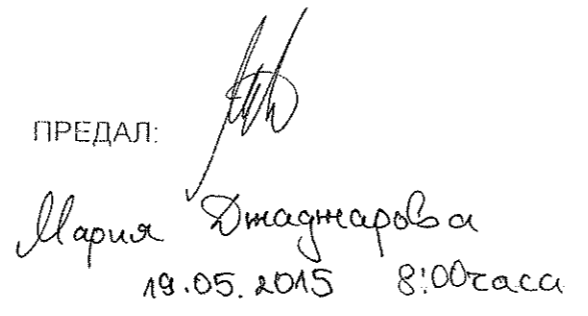 ПРЕДАЛ:
Мария Джаджарова
19.05.2015 8:00 часа